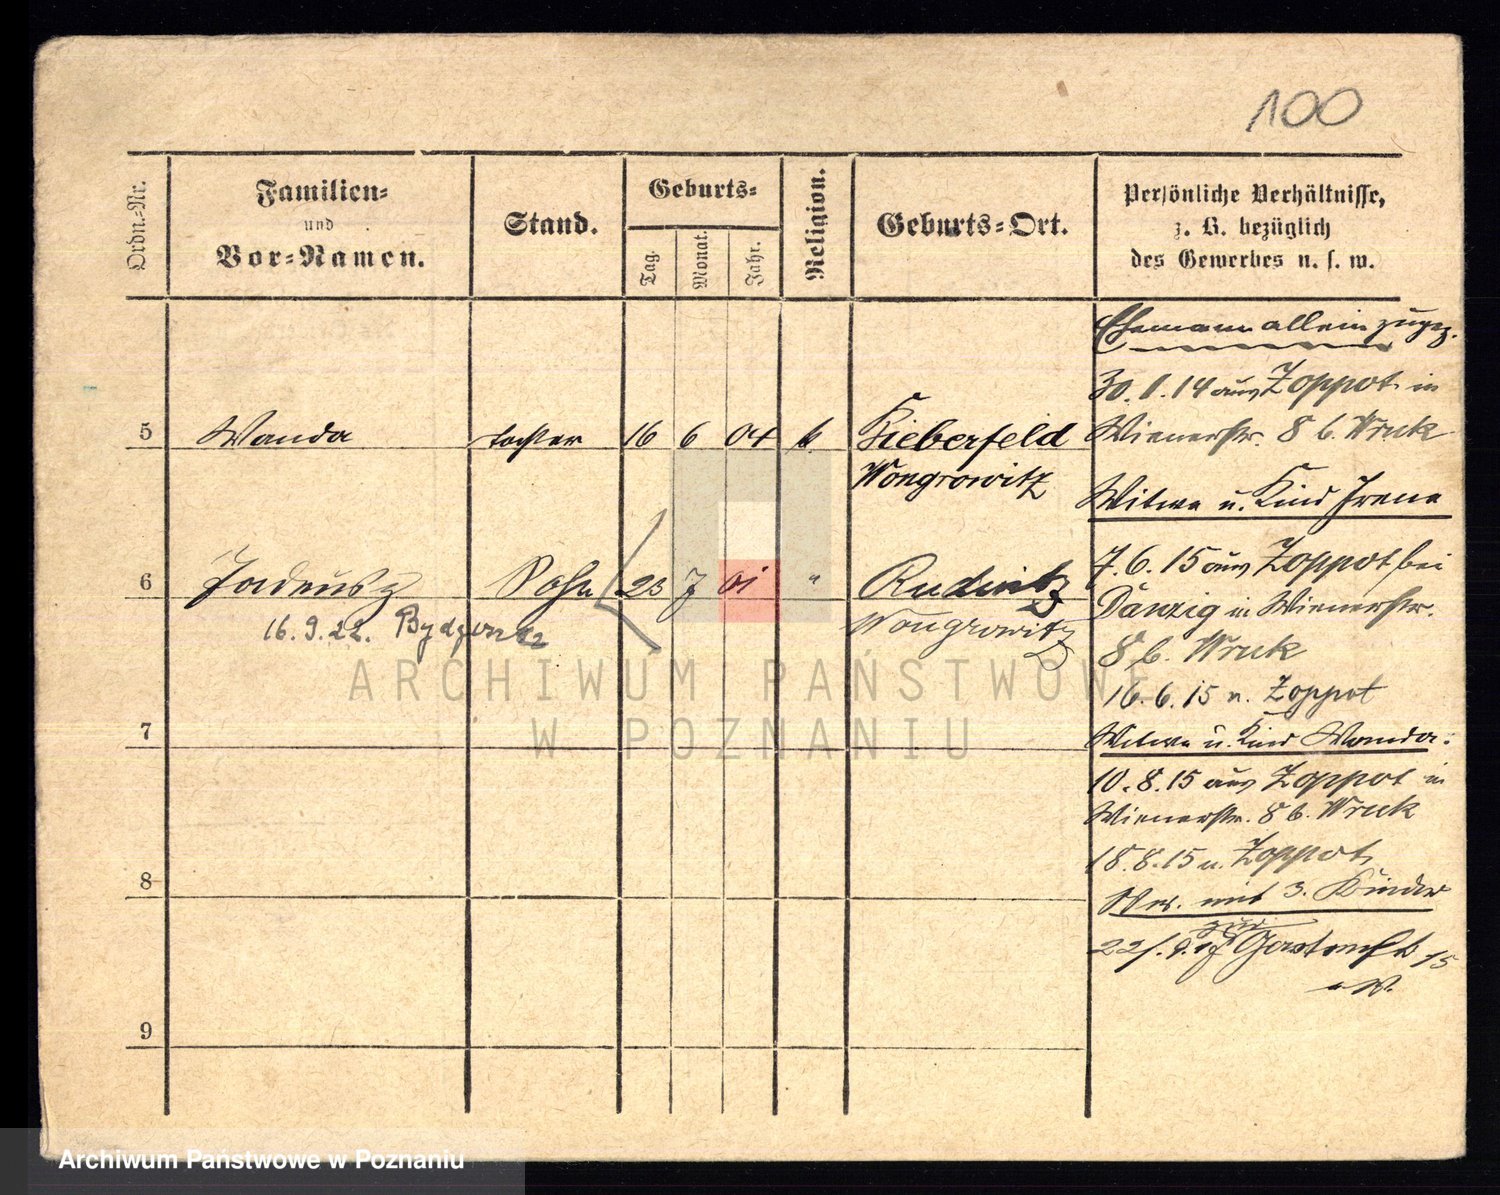 100
Ordn.-Nr.
Familien-
und
Vor-Namen.
Stand.
Geburts-
Tag.
Monat.
Jahr.
Religion.
Geburts-Ort.
Persönliche Verhältnisse,
z. B. bezüglich
des Gewerbes u. s. w.
5 Wanda Tochter 16 6 04 k. Kieberfeld
Wongrowitz
6 Tadeusz Sohn 23 7 01 " Rudnitz
16.9.22. Wongrowitz
7
8
9
Ehemann allein zugez.
30.1.14 aus Zoppot in
Wienerstr. 8 b. Wruk
Witwe u. Kind Irena
7.6.15 aus Zoppot bei
Danzig in Wienerstr.
8 b. Wruk
16.6.15 n. Zoppot
Witwe u. Kind Wanda:
10.8.15 aus Zoppot in
Wienerstr. 8 b. Wruk
18.8.15 n. Zoppot
mit 3 Kinder
15
ARCHIWUM PAŃSTWOWE
W POZNANIU
Archiwum Państwowe w Poznaniu